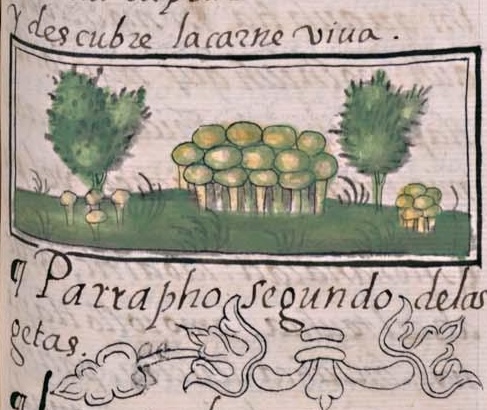 y descubre lacarne viua.
¶ Parrapho segundo, delas
getas.
¶